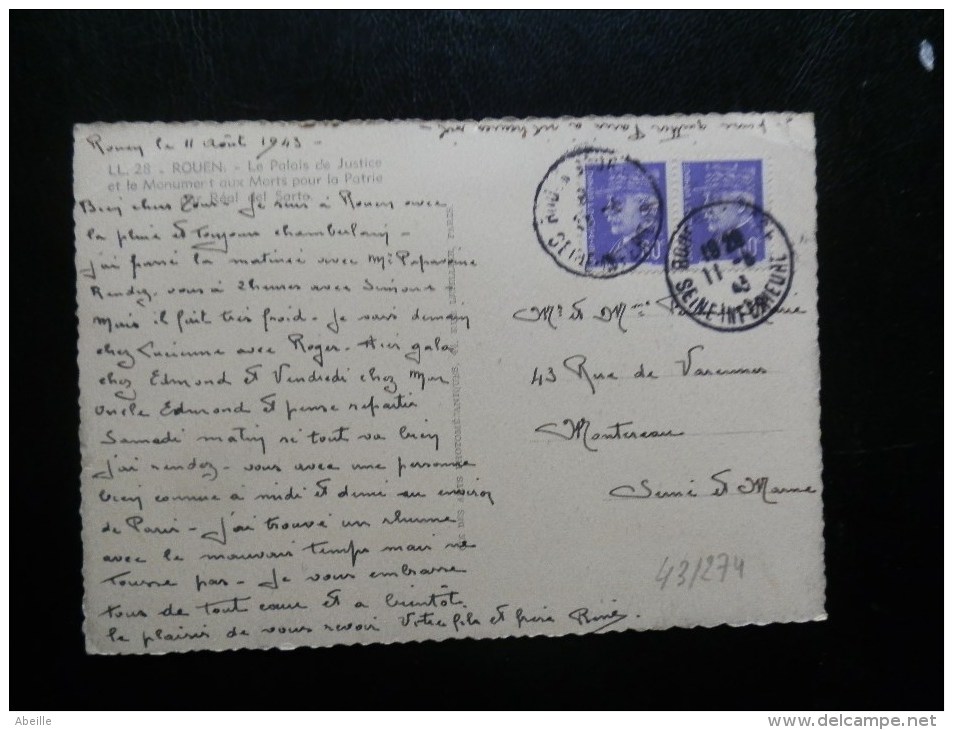 Rouen le 11 Août 1943 -
LL. 28 - ROUEN. - Le Palais de Justice
et le Monument aux Morts pour la Patrie
par Réal del Sarto
Bien chers Tous - Je suis à Rouen avec
la pluie et toujours chamberlain -
j'ai passé la matinée avec Mr Papavoine
Rendez-vous à 2 heures avec Simone -
Mais il fait très froid - Je vais demain
chez Lucienne avec Roger - Hier gala
chez Edmond et Vendredi chez Mon
oncle Edmond et pense repartir
Samedi matin si tout va bien
j'ai rendez-vous avec une personne
bien connue à midi et demi au environ
de Paris - j'ai trouvé un rhume
avec le mauvais temps mais ne
tousse pas - Je vous embrasse
tous de tout coeur et a bientôt
le plaisir de vous revoir Votre fils et frère René.
Mr et Mme
43 Rue de Varennes
Montereau
Seine et Marne
43/274
11 - 8
43
SEINE INFERIEURE
Abeille
http://www.delcampe.net